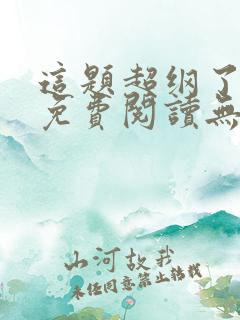 這題超纲了
免費閱讀無
山河故我
未经同意禁止转载